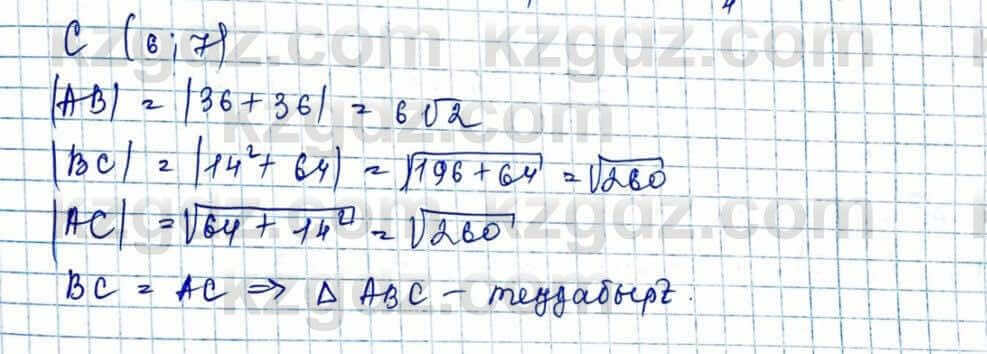 C (6; 7)
|AB| = |36 + 36| = 6√2
|BC| = |14² + 64| = √196 + 64 = √260
|AC| = √64 + 14² = √260
BC = AC ⇒ Δ ABC –
kzgdz.com kzgdz.com
kzgdz.com
kzgdz.com kzgdz.com
kzgdz.com